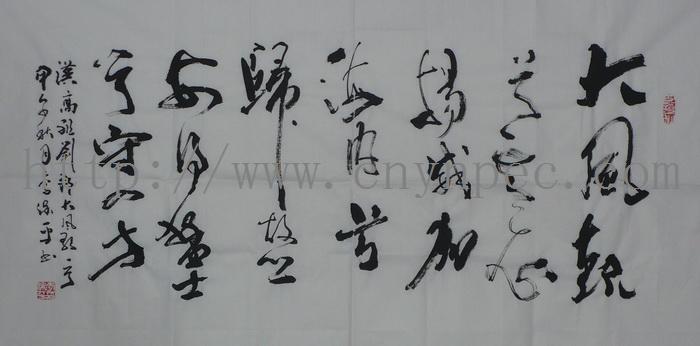 大風起
兮雲飛
揚威加
海内兮
歸故鄉
安得猛士
兮守四方
漢高祖劉邦大風歌一首
甲午秋月李保平書